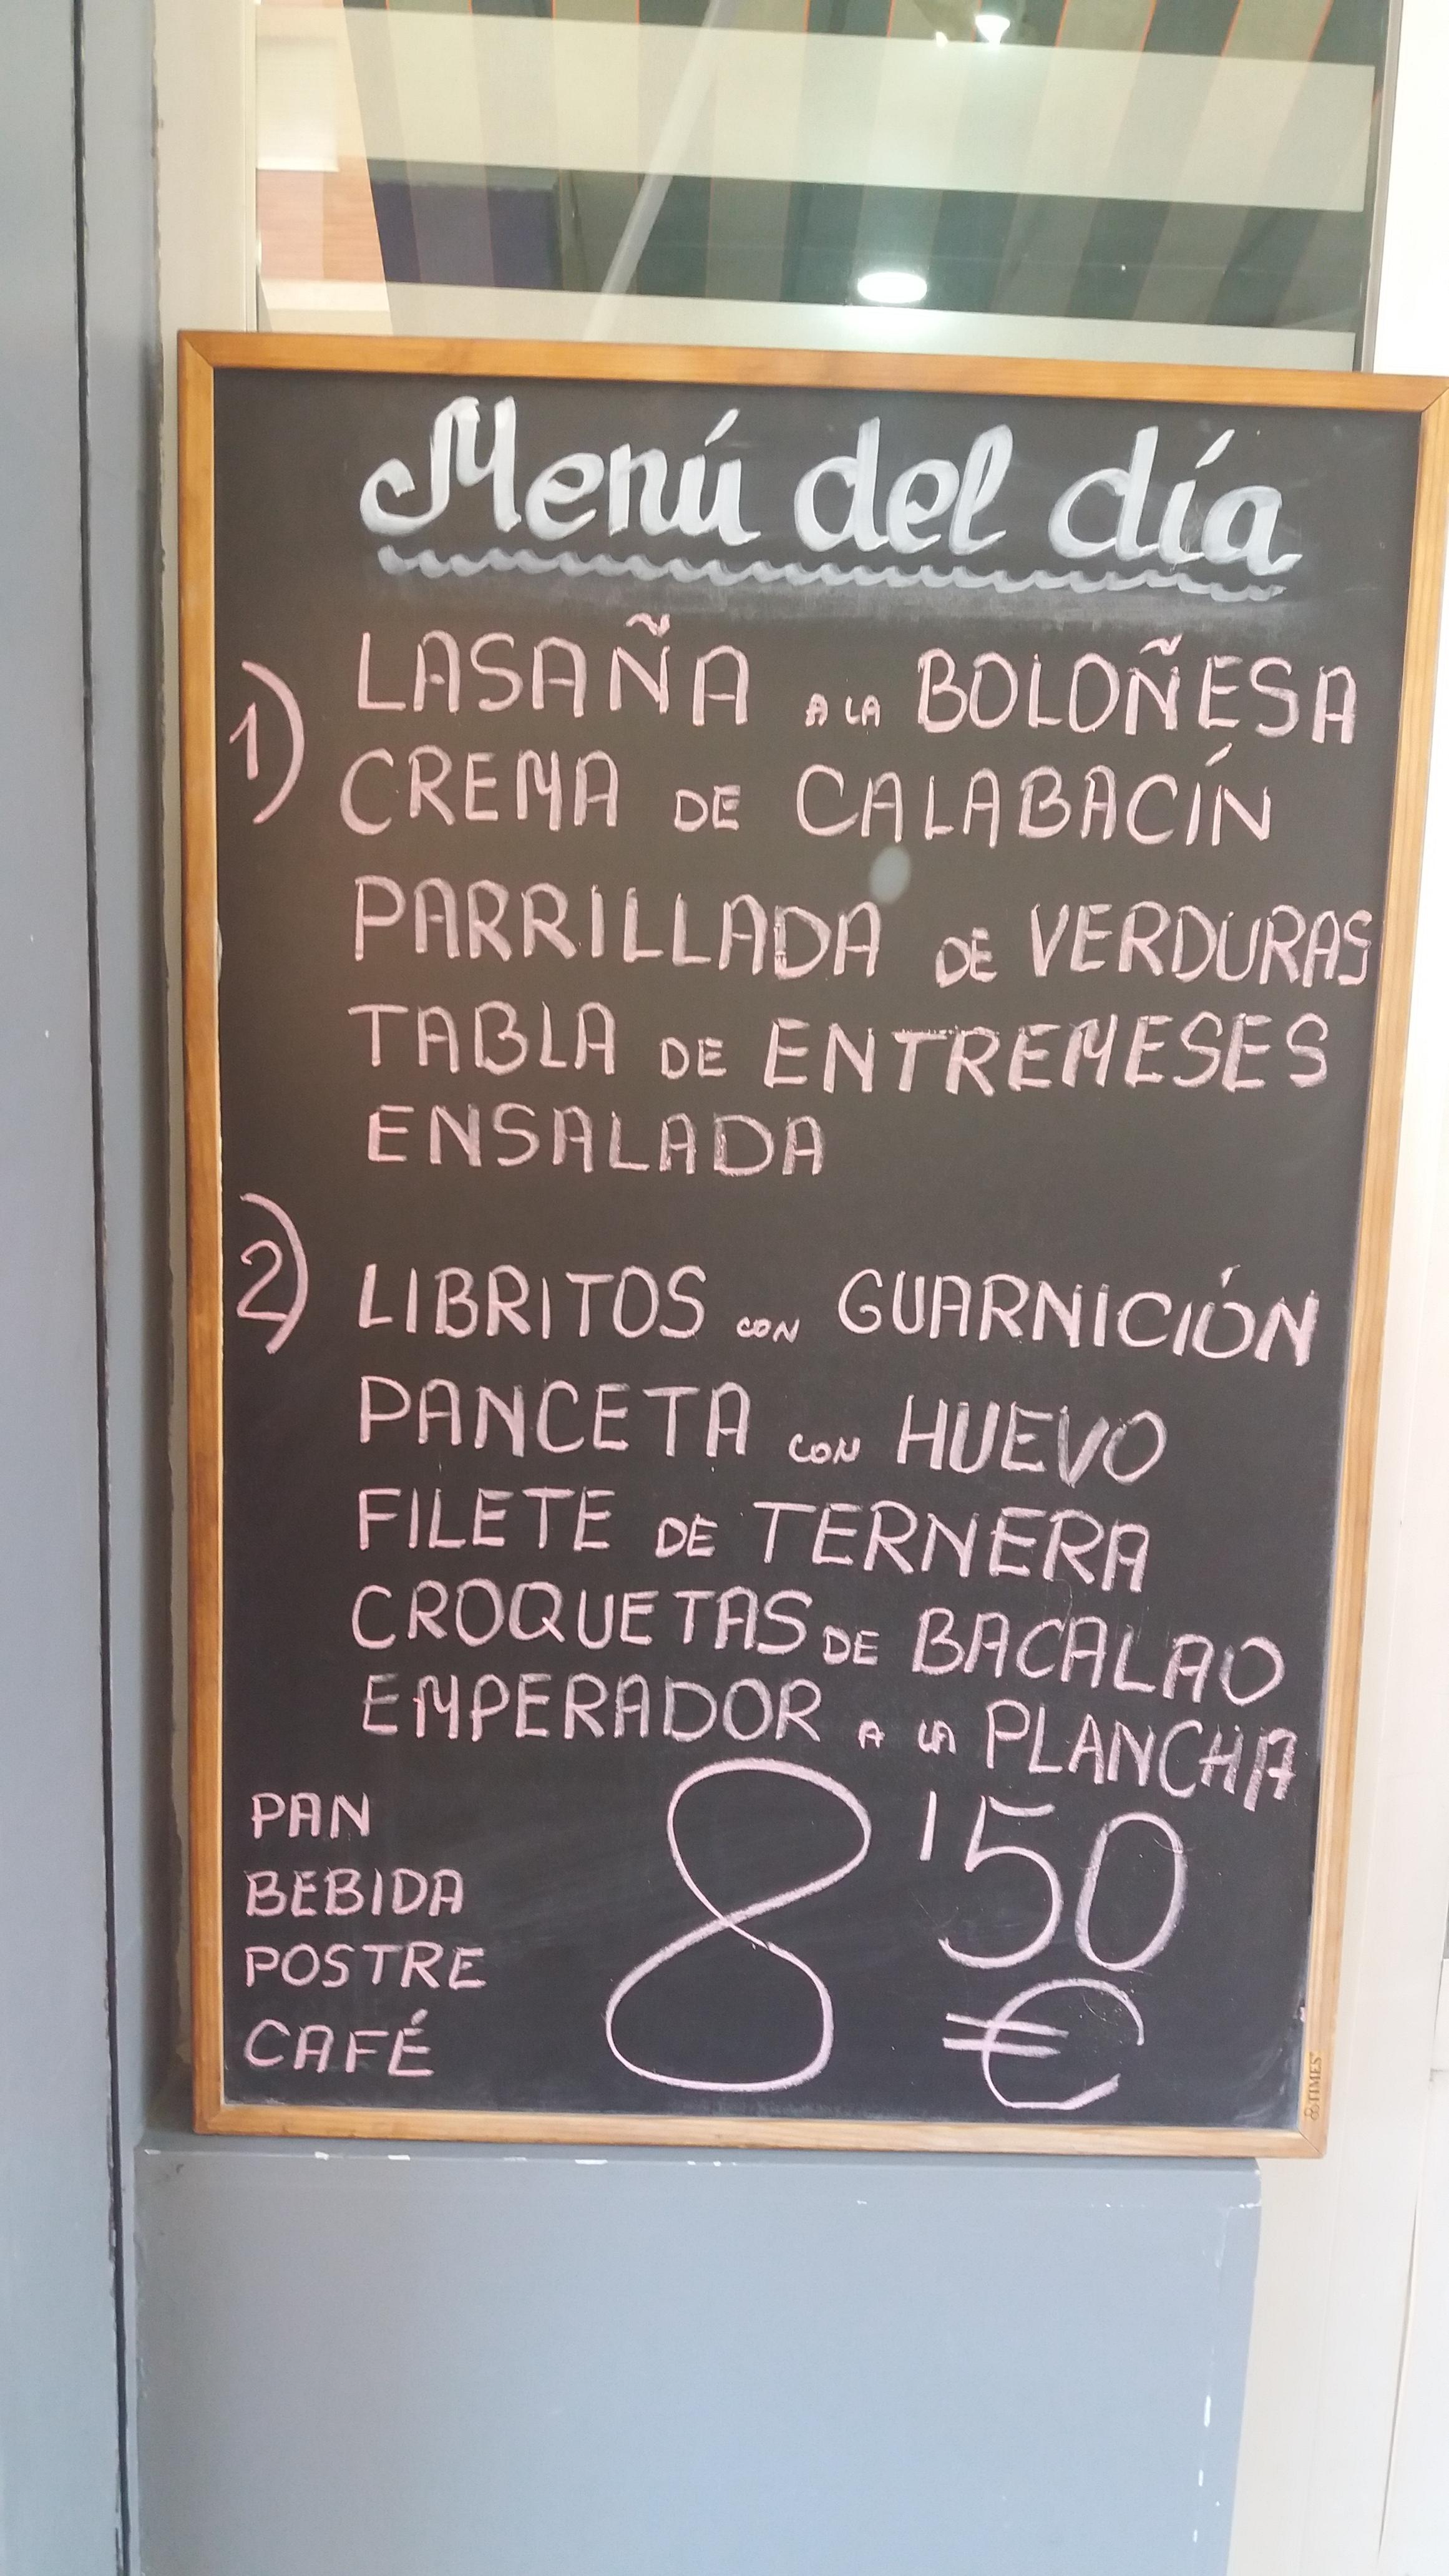 Menú del día
1) LASAÑA A LA BOLOÑESA
CREMA DE CALABACÍN
PARRILLADA DE VERDURAS
TABLA DE ENTREMESES
ENSALADA
2) LIBRITOS CON GUARNICIÓN
PANCETA CON HUEVO
FILETE DE TERNERA
CROQUETAS DE BACALAO
EMPERADOR A LA PLANCHA
PAN
BEBIDA
POSTRE
CAFÉ
8'50
€
TIMES